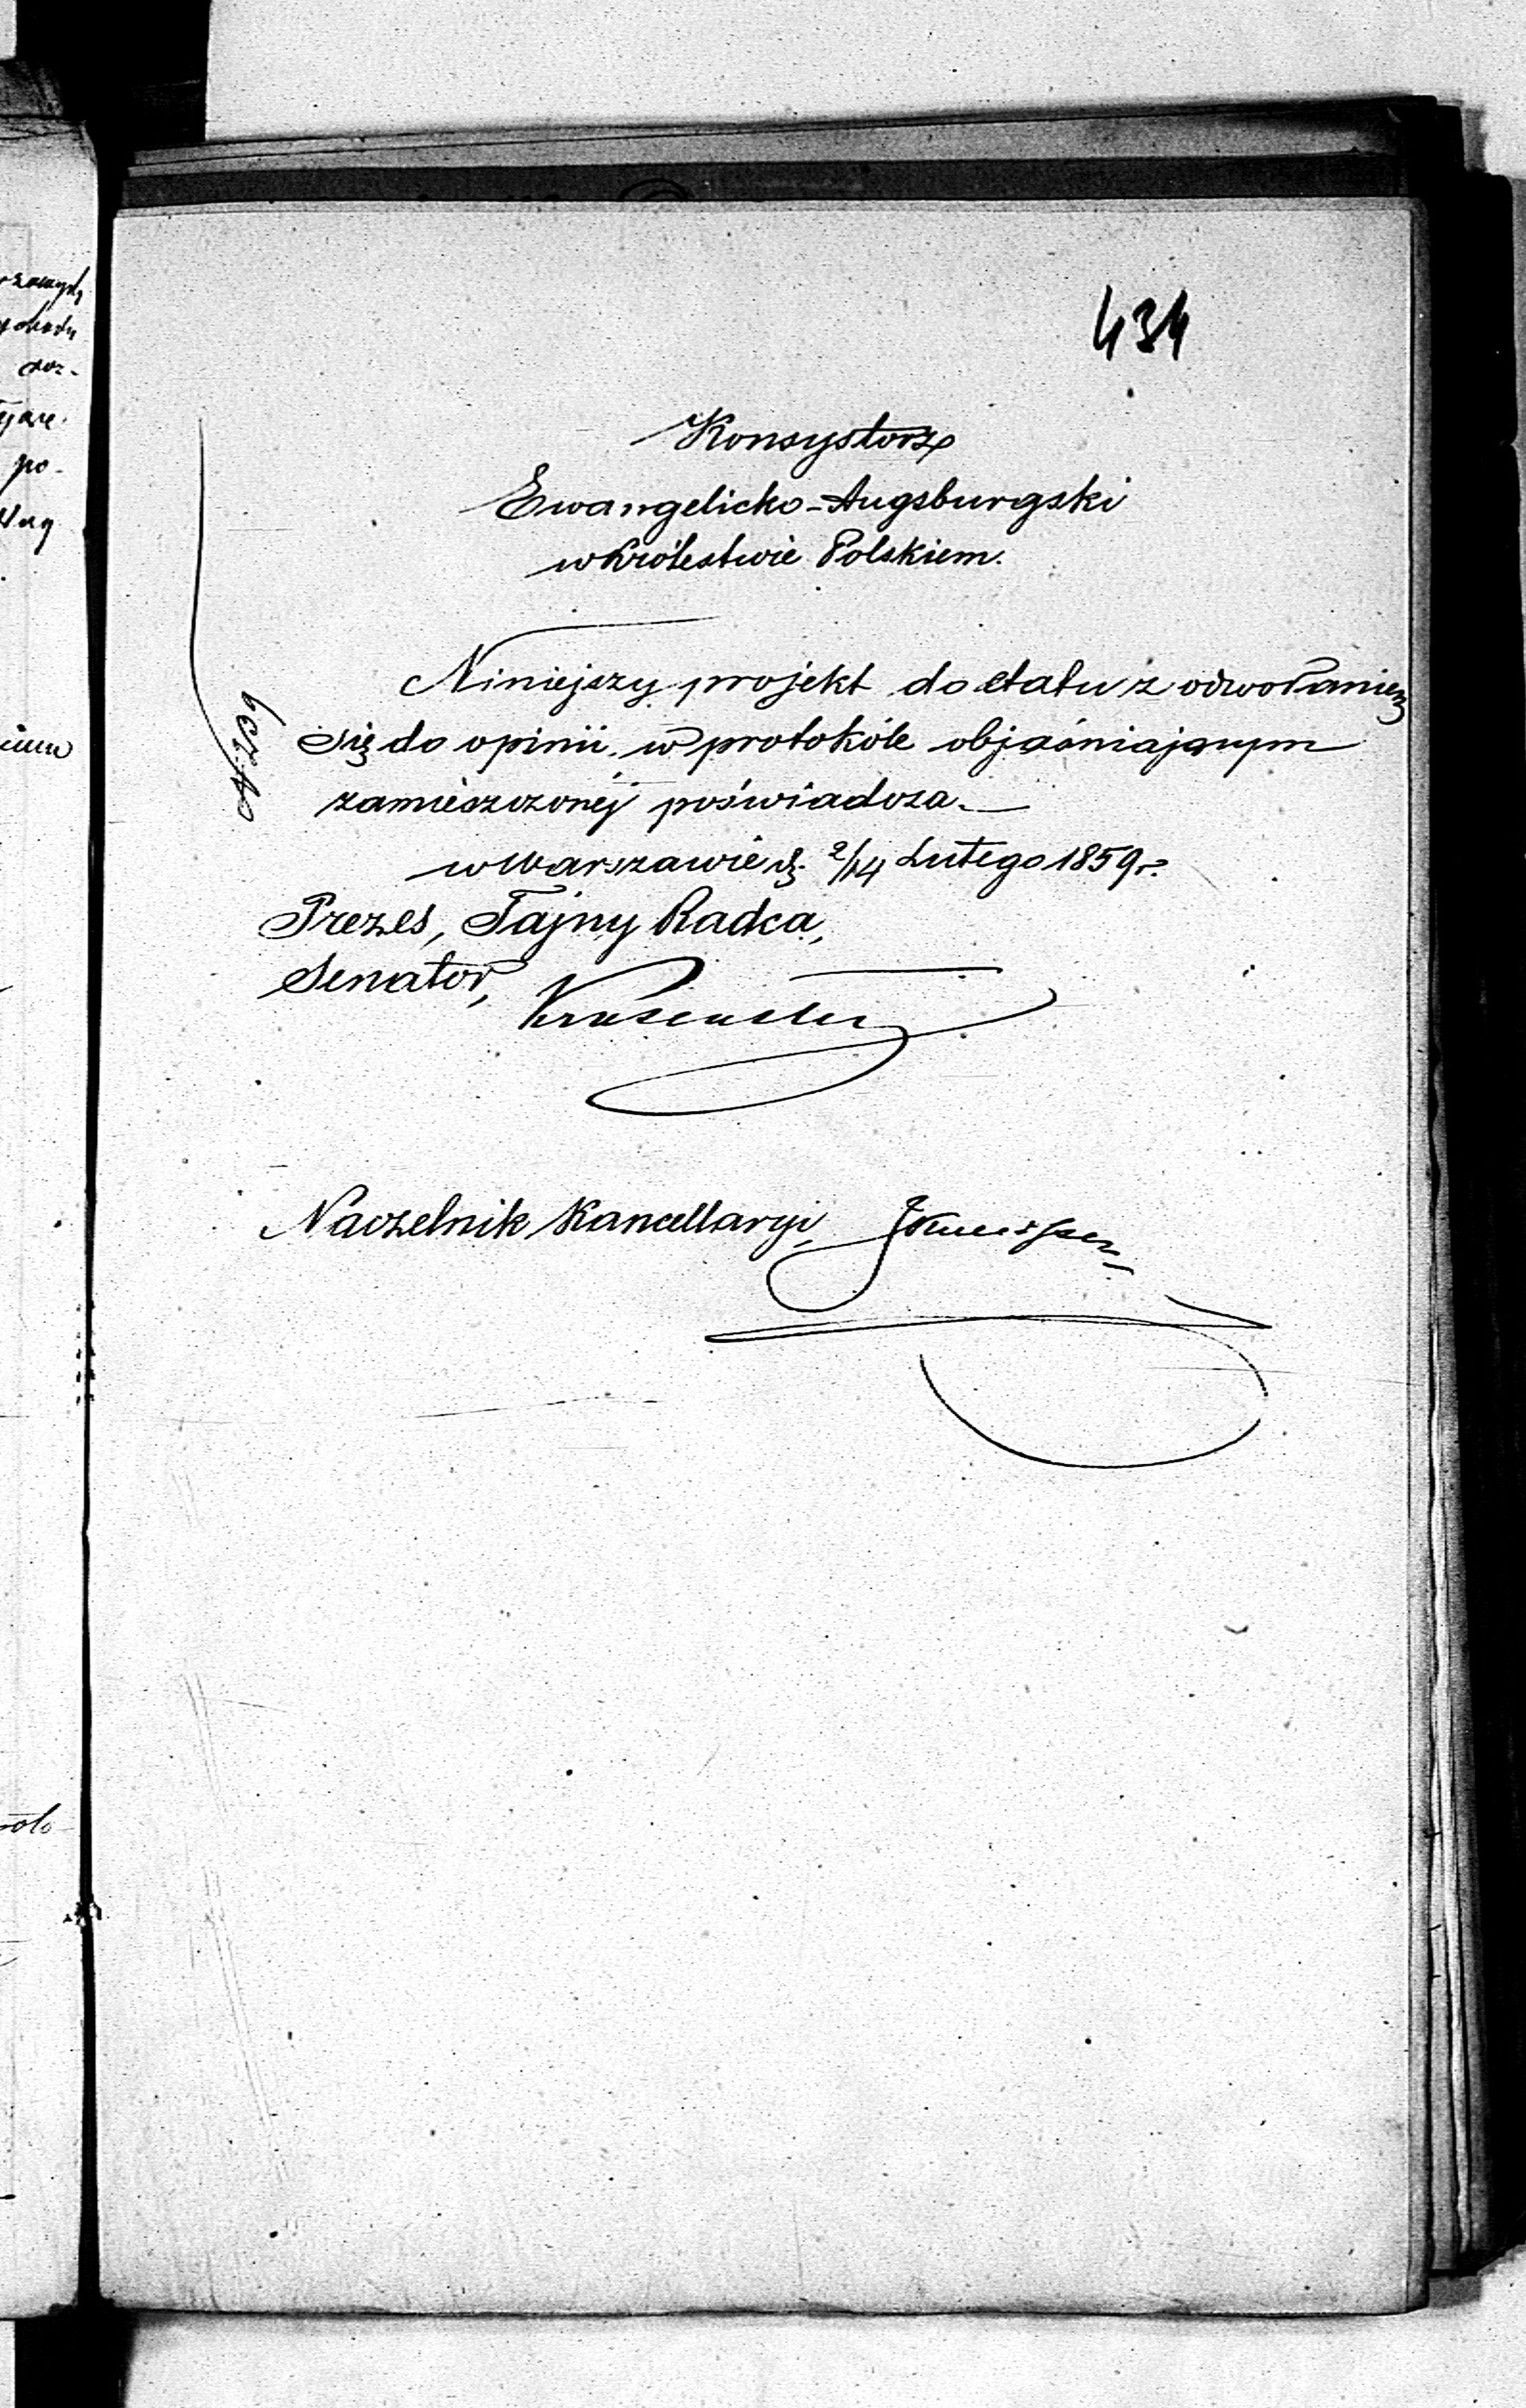 434
Konsystorz
Ewangelicko-Augsburgski
w Królestwie Polskiem.
Niniejszy projekt do etatu z odwołaniem
się do opinii, w protokóle objaśniającym
zamieszczonéj poświadcza.—
w Warszawie d. 2/14 Lutego 1859 r.
N. 209
Prezes, Tajny Radca,
Senator,
Naczelnik Kancellaryi,
po-